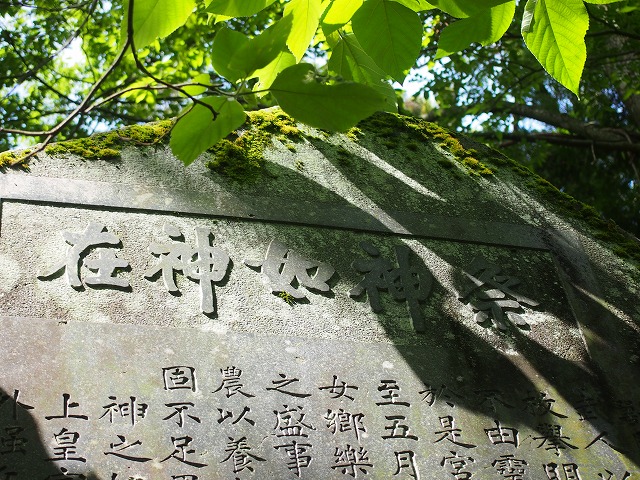 祭神如神在
人
故擧
由靈
於是宮
至五月
女鄉樂
之盛事
農以養
固不足
神之
上皇